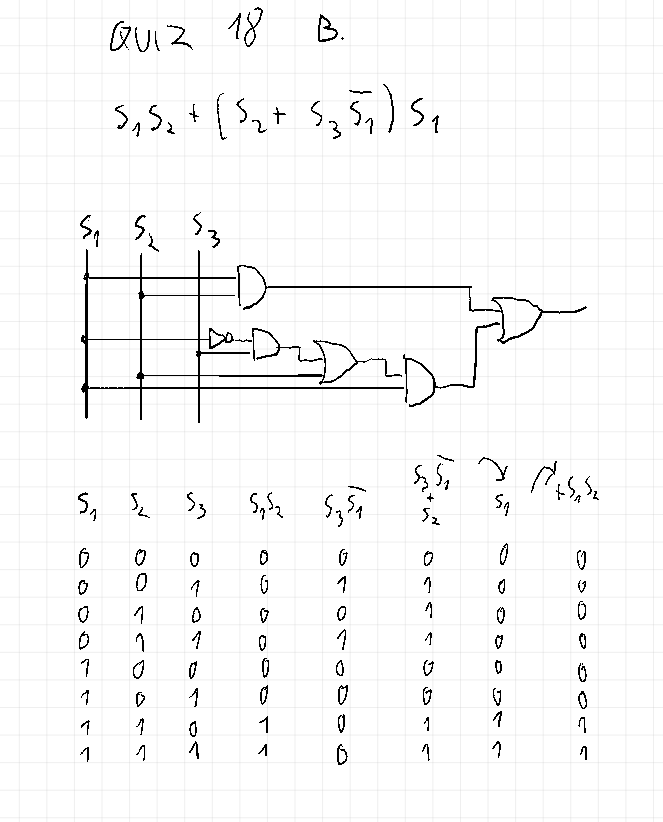 QUIZ 18 B.
S₁S₂ + (S₂ + S₃S̅₁) S₁
S₁ S₂ S₃
S₁ S₂ S₃ S₁S₂ S₃S̅₁ S₃S̅₁ + S₂ S₁ + S₁S₂
0 0 0 0 0 0 0 0
0 0 1 0 1 1 0 0
0 1 0 0 0 1 0 0
0 1 1 0 1 1 0 0
1 0 0 0 0 0 0 0
1 0 1 0 0 0 0 0
1 1 0 1 0 1 1 1
1 1 1 1 0 1 1 1